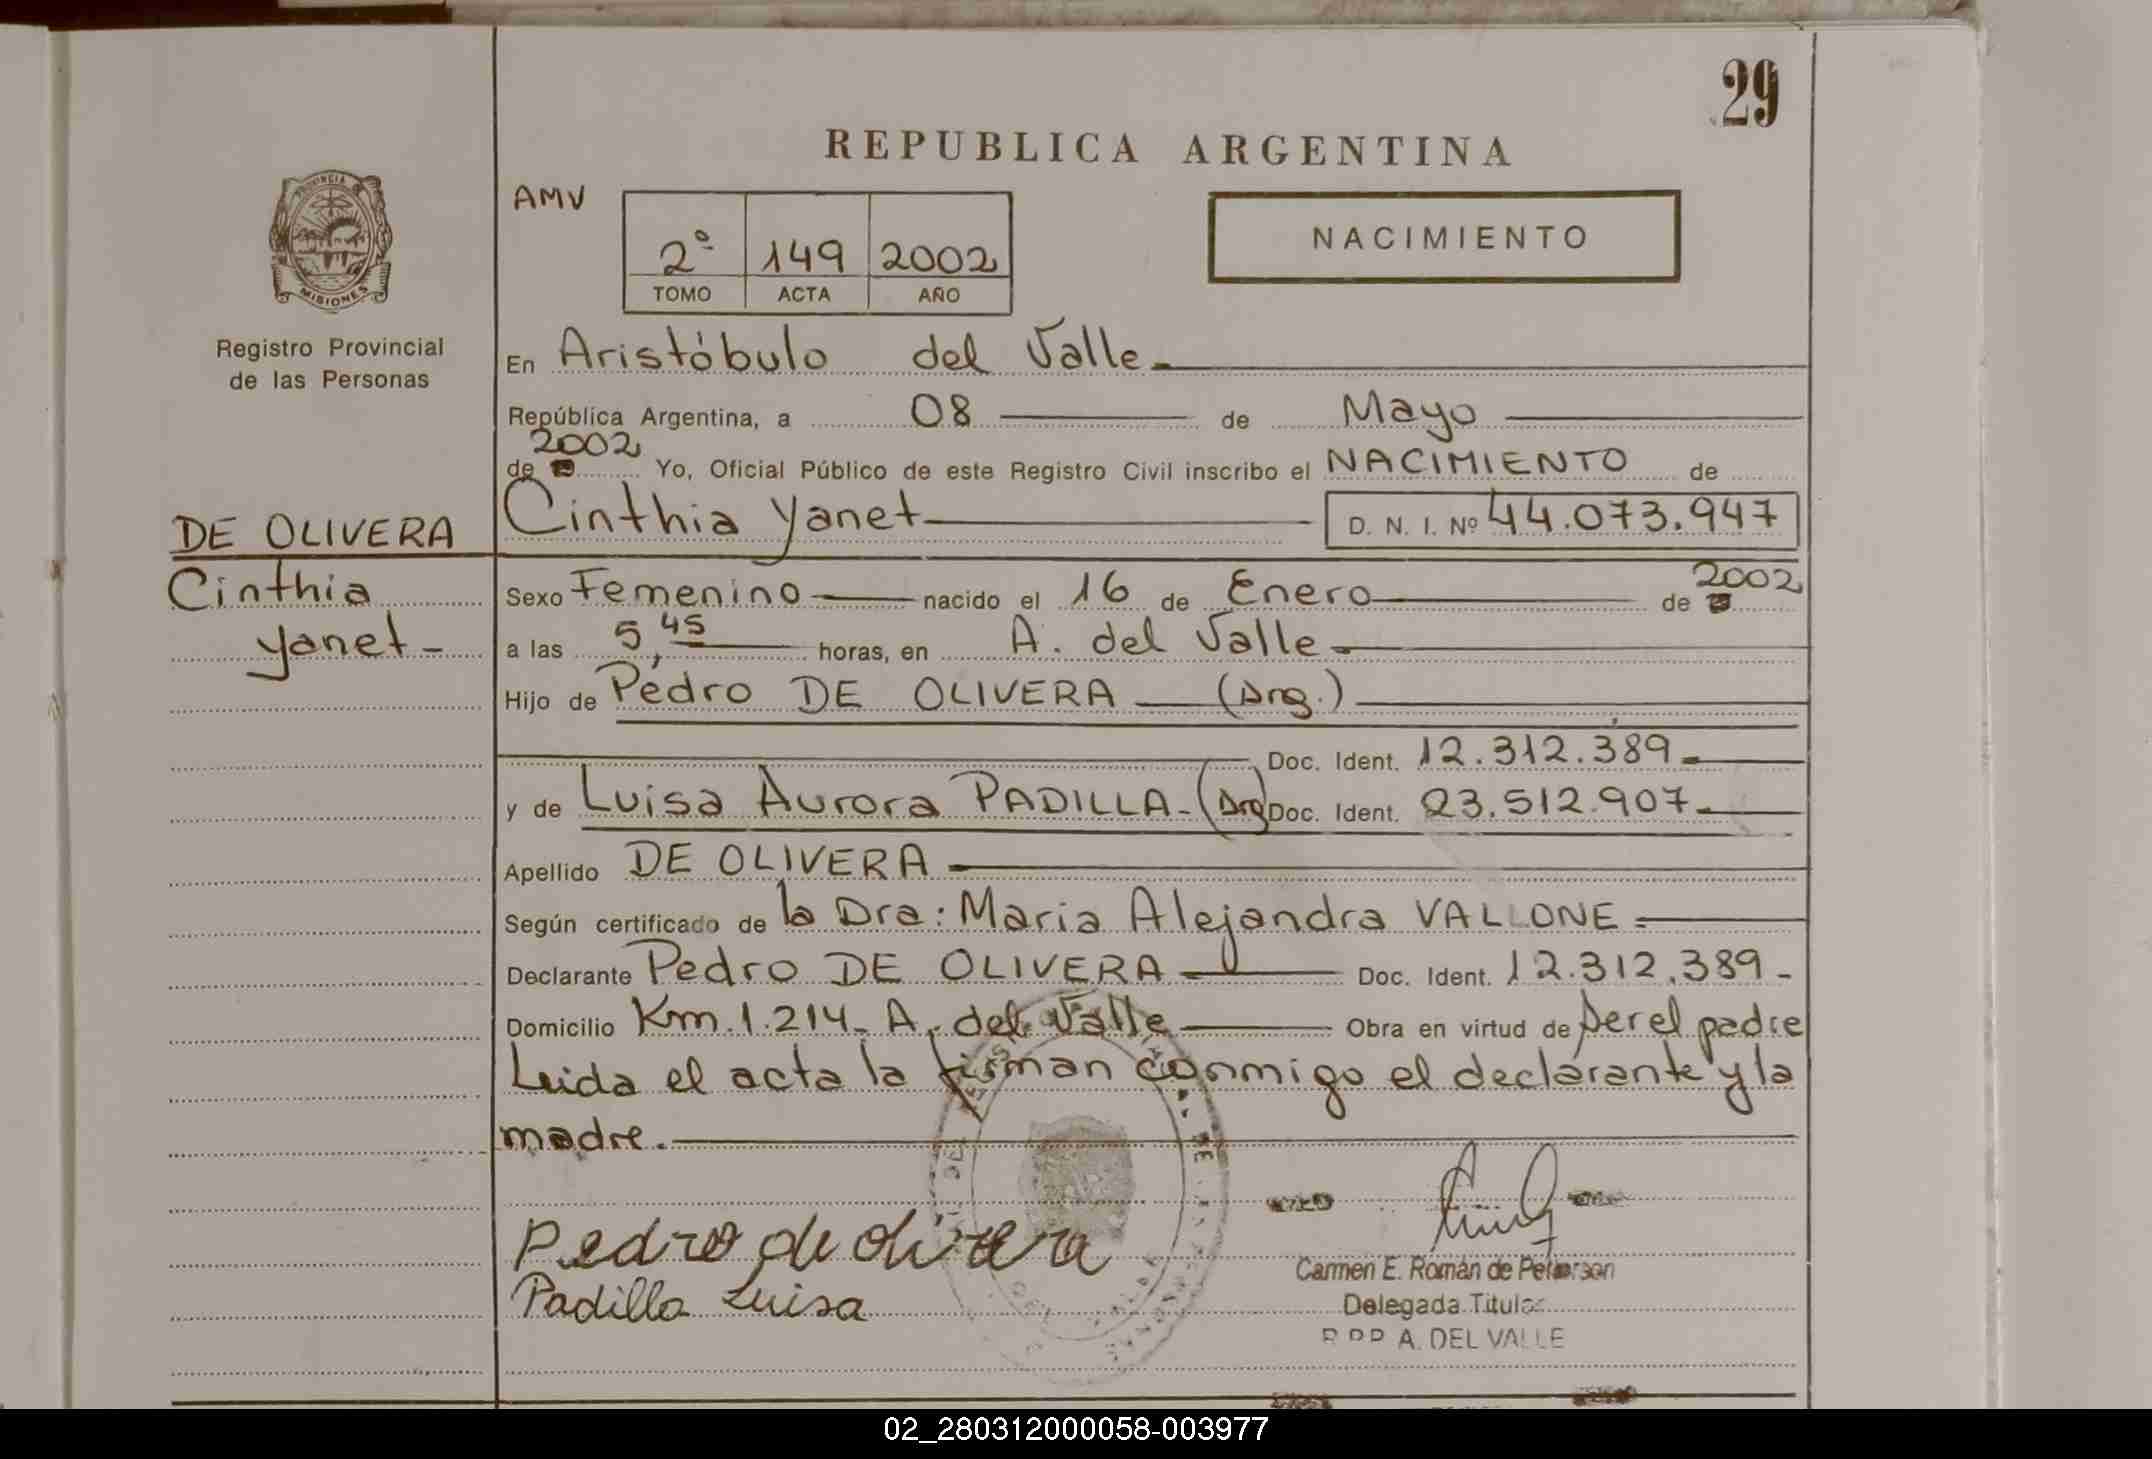 29
REPUBLICA ARGENTINA
PROVINCIA DE
MISIONES
Registro Provincial
de las Personas
AMV
2º 149 2002
TOMO ACTA AÑO
NACIMIENTO
En Aristóbulo del Valle
República Argentina, a 08 de Mayo
2002
de 19 Yo, Oficial Público de este Registro Civil inscribo el NACIMIENTO de
DE OLIVERA
Cinthia
Yanet-
Cinthia Yanet D. N. I. Nº 44.073.947
Sexo Femenino nacido el 16 de Enero de 2002
a las 5,45 horas, en A. del Valle
Hijo de Pedro DE OLIVERA (Arg.)
Doc. Ident. 12.312.389
y de Luisa Aurora PADILLA-(Arg) Doc. Ident. 23.512.907
Apellido DE OLIVERA
Según certificado de la Dra: Maria Alejandra VALLONE
Declarante Pedro DE OLIVERA Doc. Ident. 12.312.389-
Domicilio Km.1.214- A. del Valle Obra en virtud de ser el padre
Leida el acta la firman conmigo el declarante y la
madre.
Pedro de olivera
Padilla Luisa
Carmen E. Román de Peterson
Delegada Titular
R.P.P. A. DEL VALLE
02_280312000058-003977